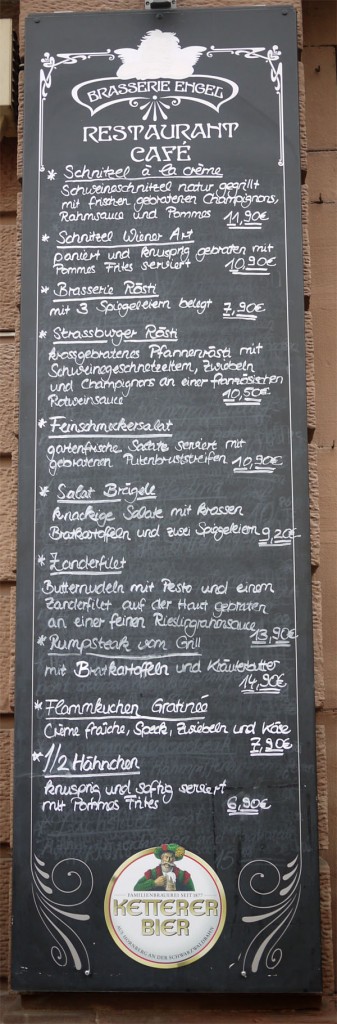 BRASSERIE ENGEL
RESTAURANT
CAFÉ
* Schnitzel à la crème
Schweineschnitzel natur gegrillt
mit frischen gebratenen Champignons,
Rahmsauce und Pommes 11,90€
* Schnitzel Wiener Art
paniert und knusprig gebraten mit
Pommes Frites serviert 10,90€
* Brasserie Rösti
mit 3 Spiegeleiern belegt 7,90€
* Strassburger Rösti
krossgebratenes Pfannenrösti mit
Schweinegeschnetzeltem, Zwiebeln
und Champignons an einer französischen
Rotweinsauce 10,50€
* Feinschmeckersalat
gartenfrische Salate serviert mit
gebratenen Putenbruststreifen 10,90€
* Salat Brägele
knackige Salate mit krossen
Bratkartoffeln und zwei Spiegeleiern 9,20€
* Zanderfilet
Butternudeln mit Pesto und einem
Zanderfilet auf der Haut gebraten
an einer feinen Rieslingrahmsauce 13,90€
* Rumpsteak vom Grill
mit Bratkartoffeln und Kräuterbutter
14,90€
* Flammkuchen Gratinée
Crème fraîche, Speck, Zwiebeln und Käse
7,90€
* 1/2 Hähnchen
knusprig und saftig serviert
mit Pommes Frites 6,90€
FAMILIENBRAUEREI SEIT 1877
KETTERER
BIER
AUS HORNBERG AN DER SCHWARZWALDBAHN